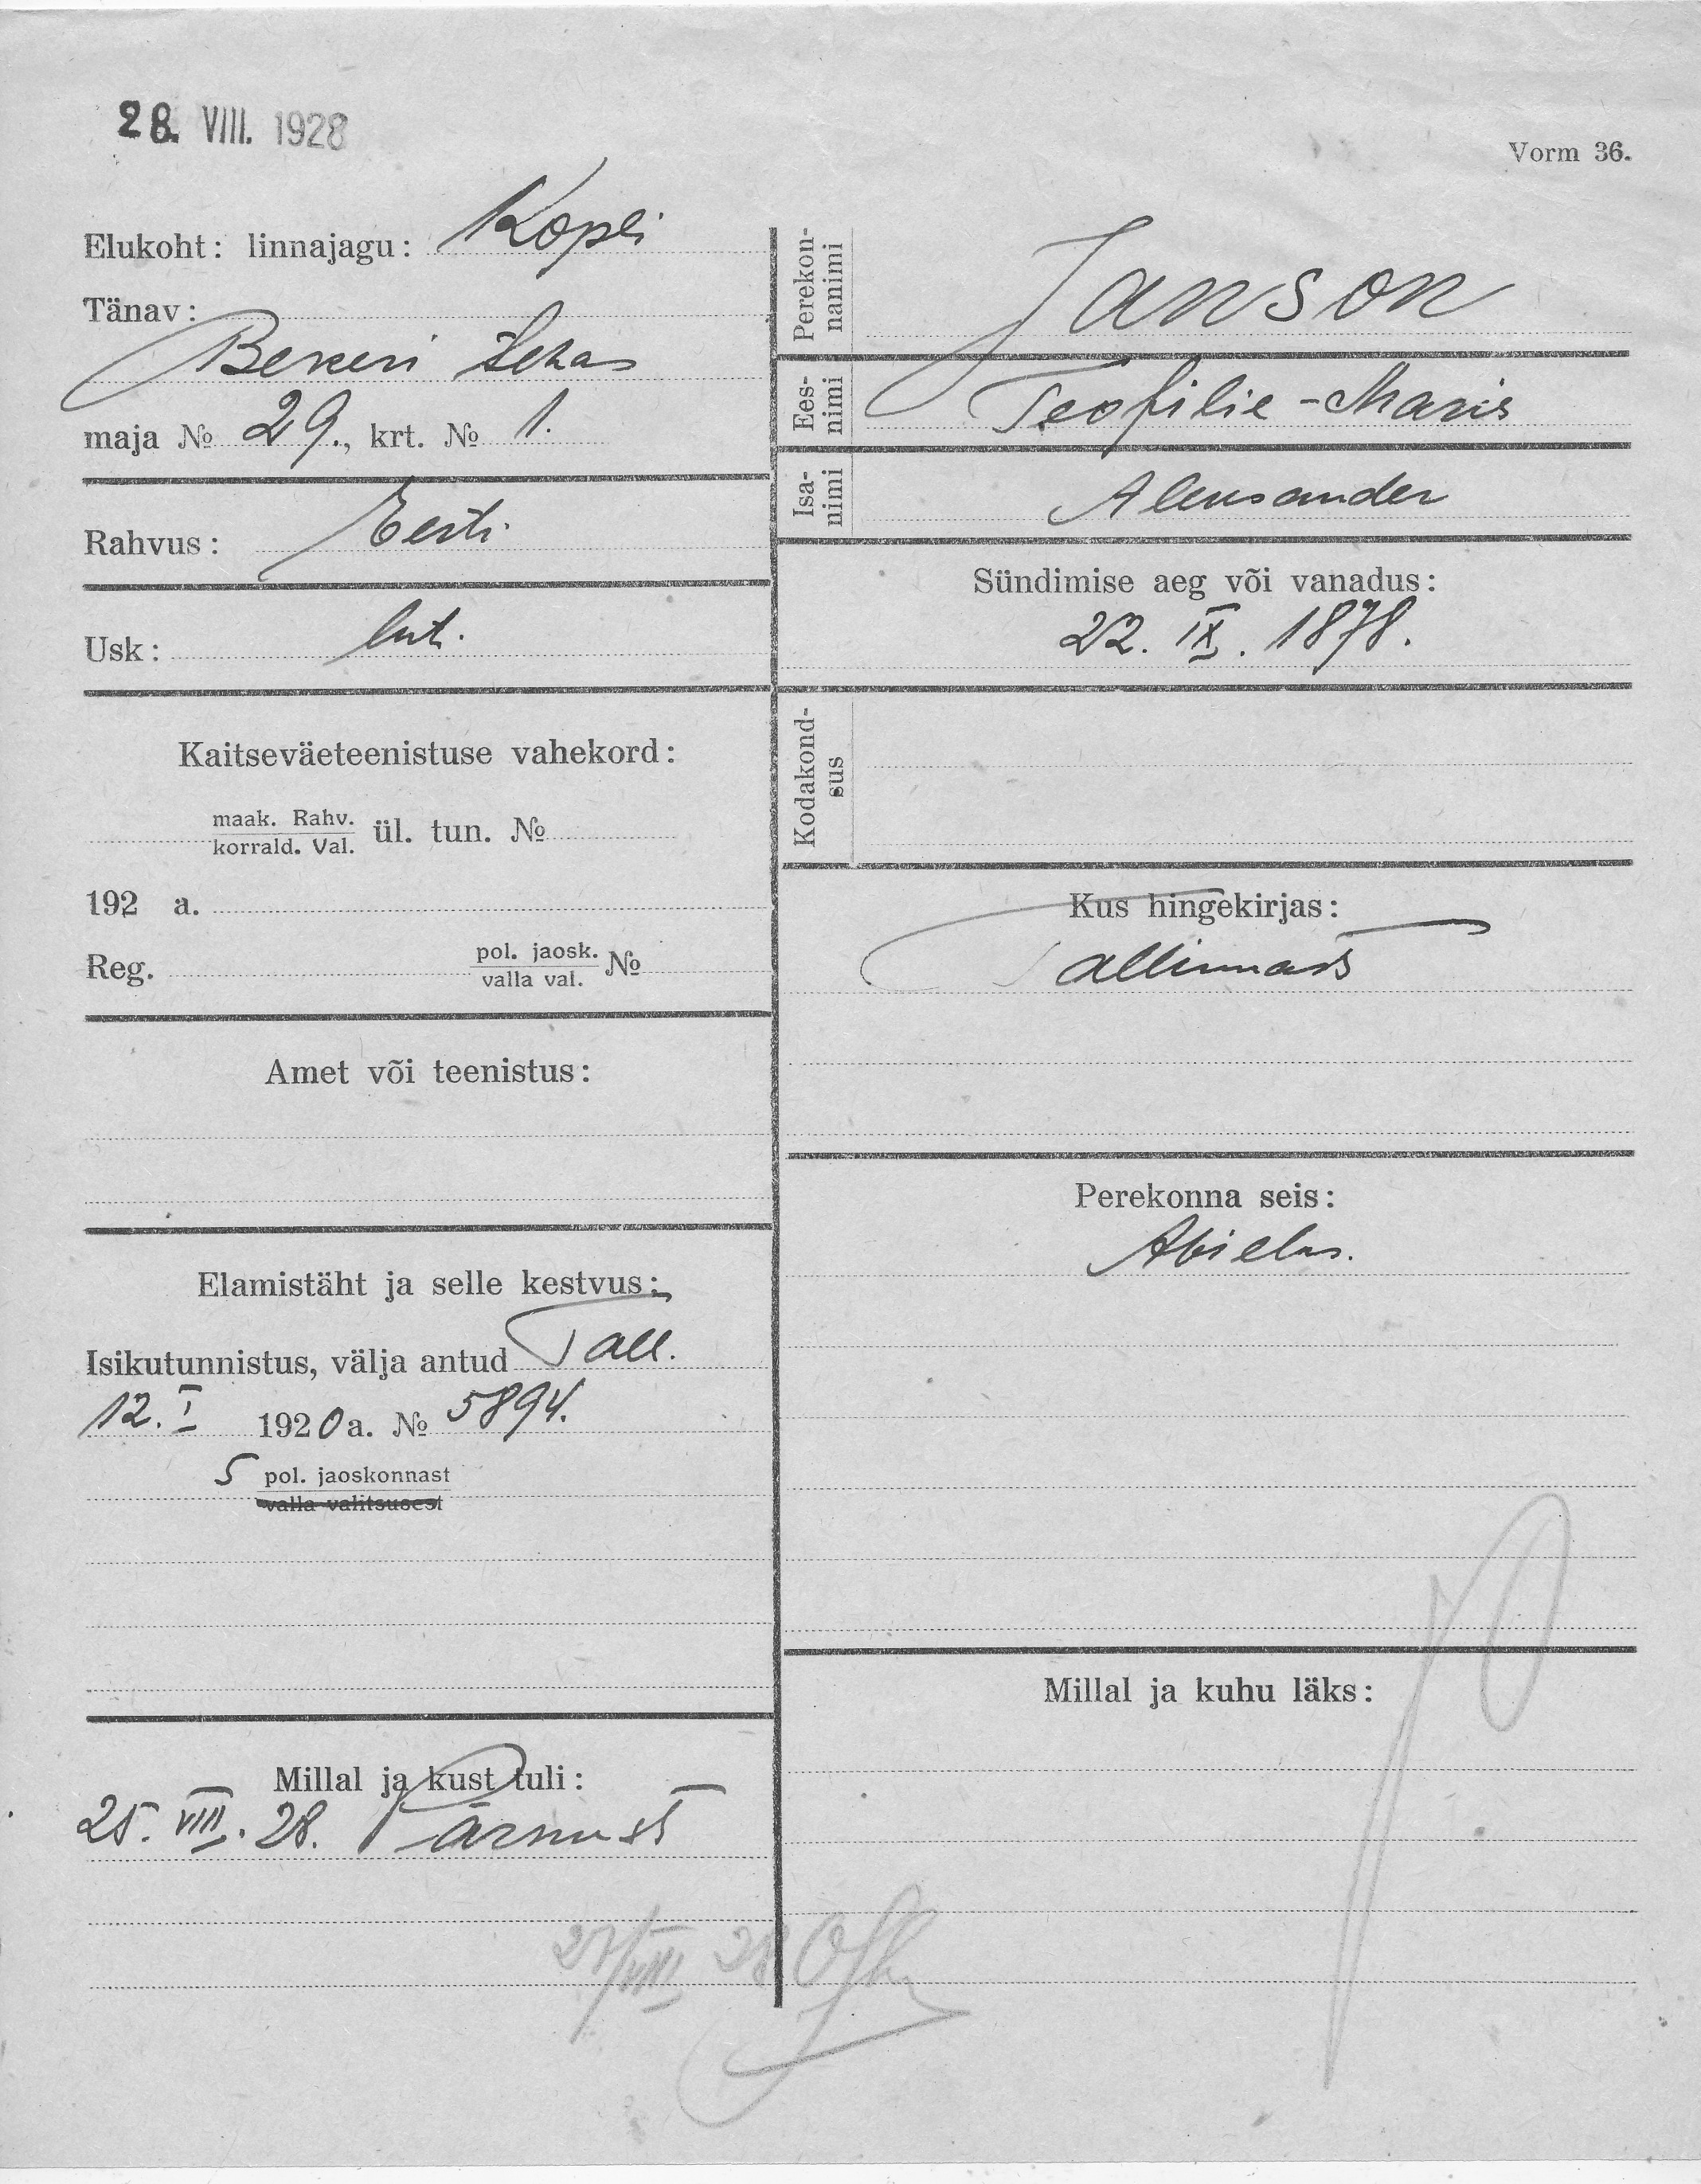 28. VIII. 1928
Vorm 36.
Elukoht: linnajagu: Kopli
Tänav:
Bekeri tehas
maja № 29., krt. № 1.
Rahvus: Eesti
Usk: lut.
Kaitseväeteenistuse vahekord:
maak. Rahv.
korrald. Val. ül. tun. №
192 a.
Reg. pol. jaosk.
valla val. №
Amet või teenistus:
Elamistäht ja selle kestvus:
Isikutunnistus, välja antud Tall.
12. I 1920 a. № 5894.
5 pol. jaoskonnast
valla valitsusest
Millal ja kust tuli:
25. VIII. 28. Pärnust
27/VIII 28
Perekon-
nanimi
Janson
Ees-
nimi
Teofilie-Marie
Isa-
nimi
Aleksander
Sündimise aeg või vanadus:
22. IX. 1878.
Kodakond-
sus
Kus hingekirjas:
Tallinnas
Perekonna seis:
Abielus.
Millal ja kuhu läks: